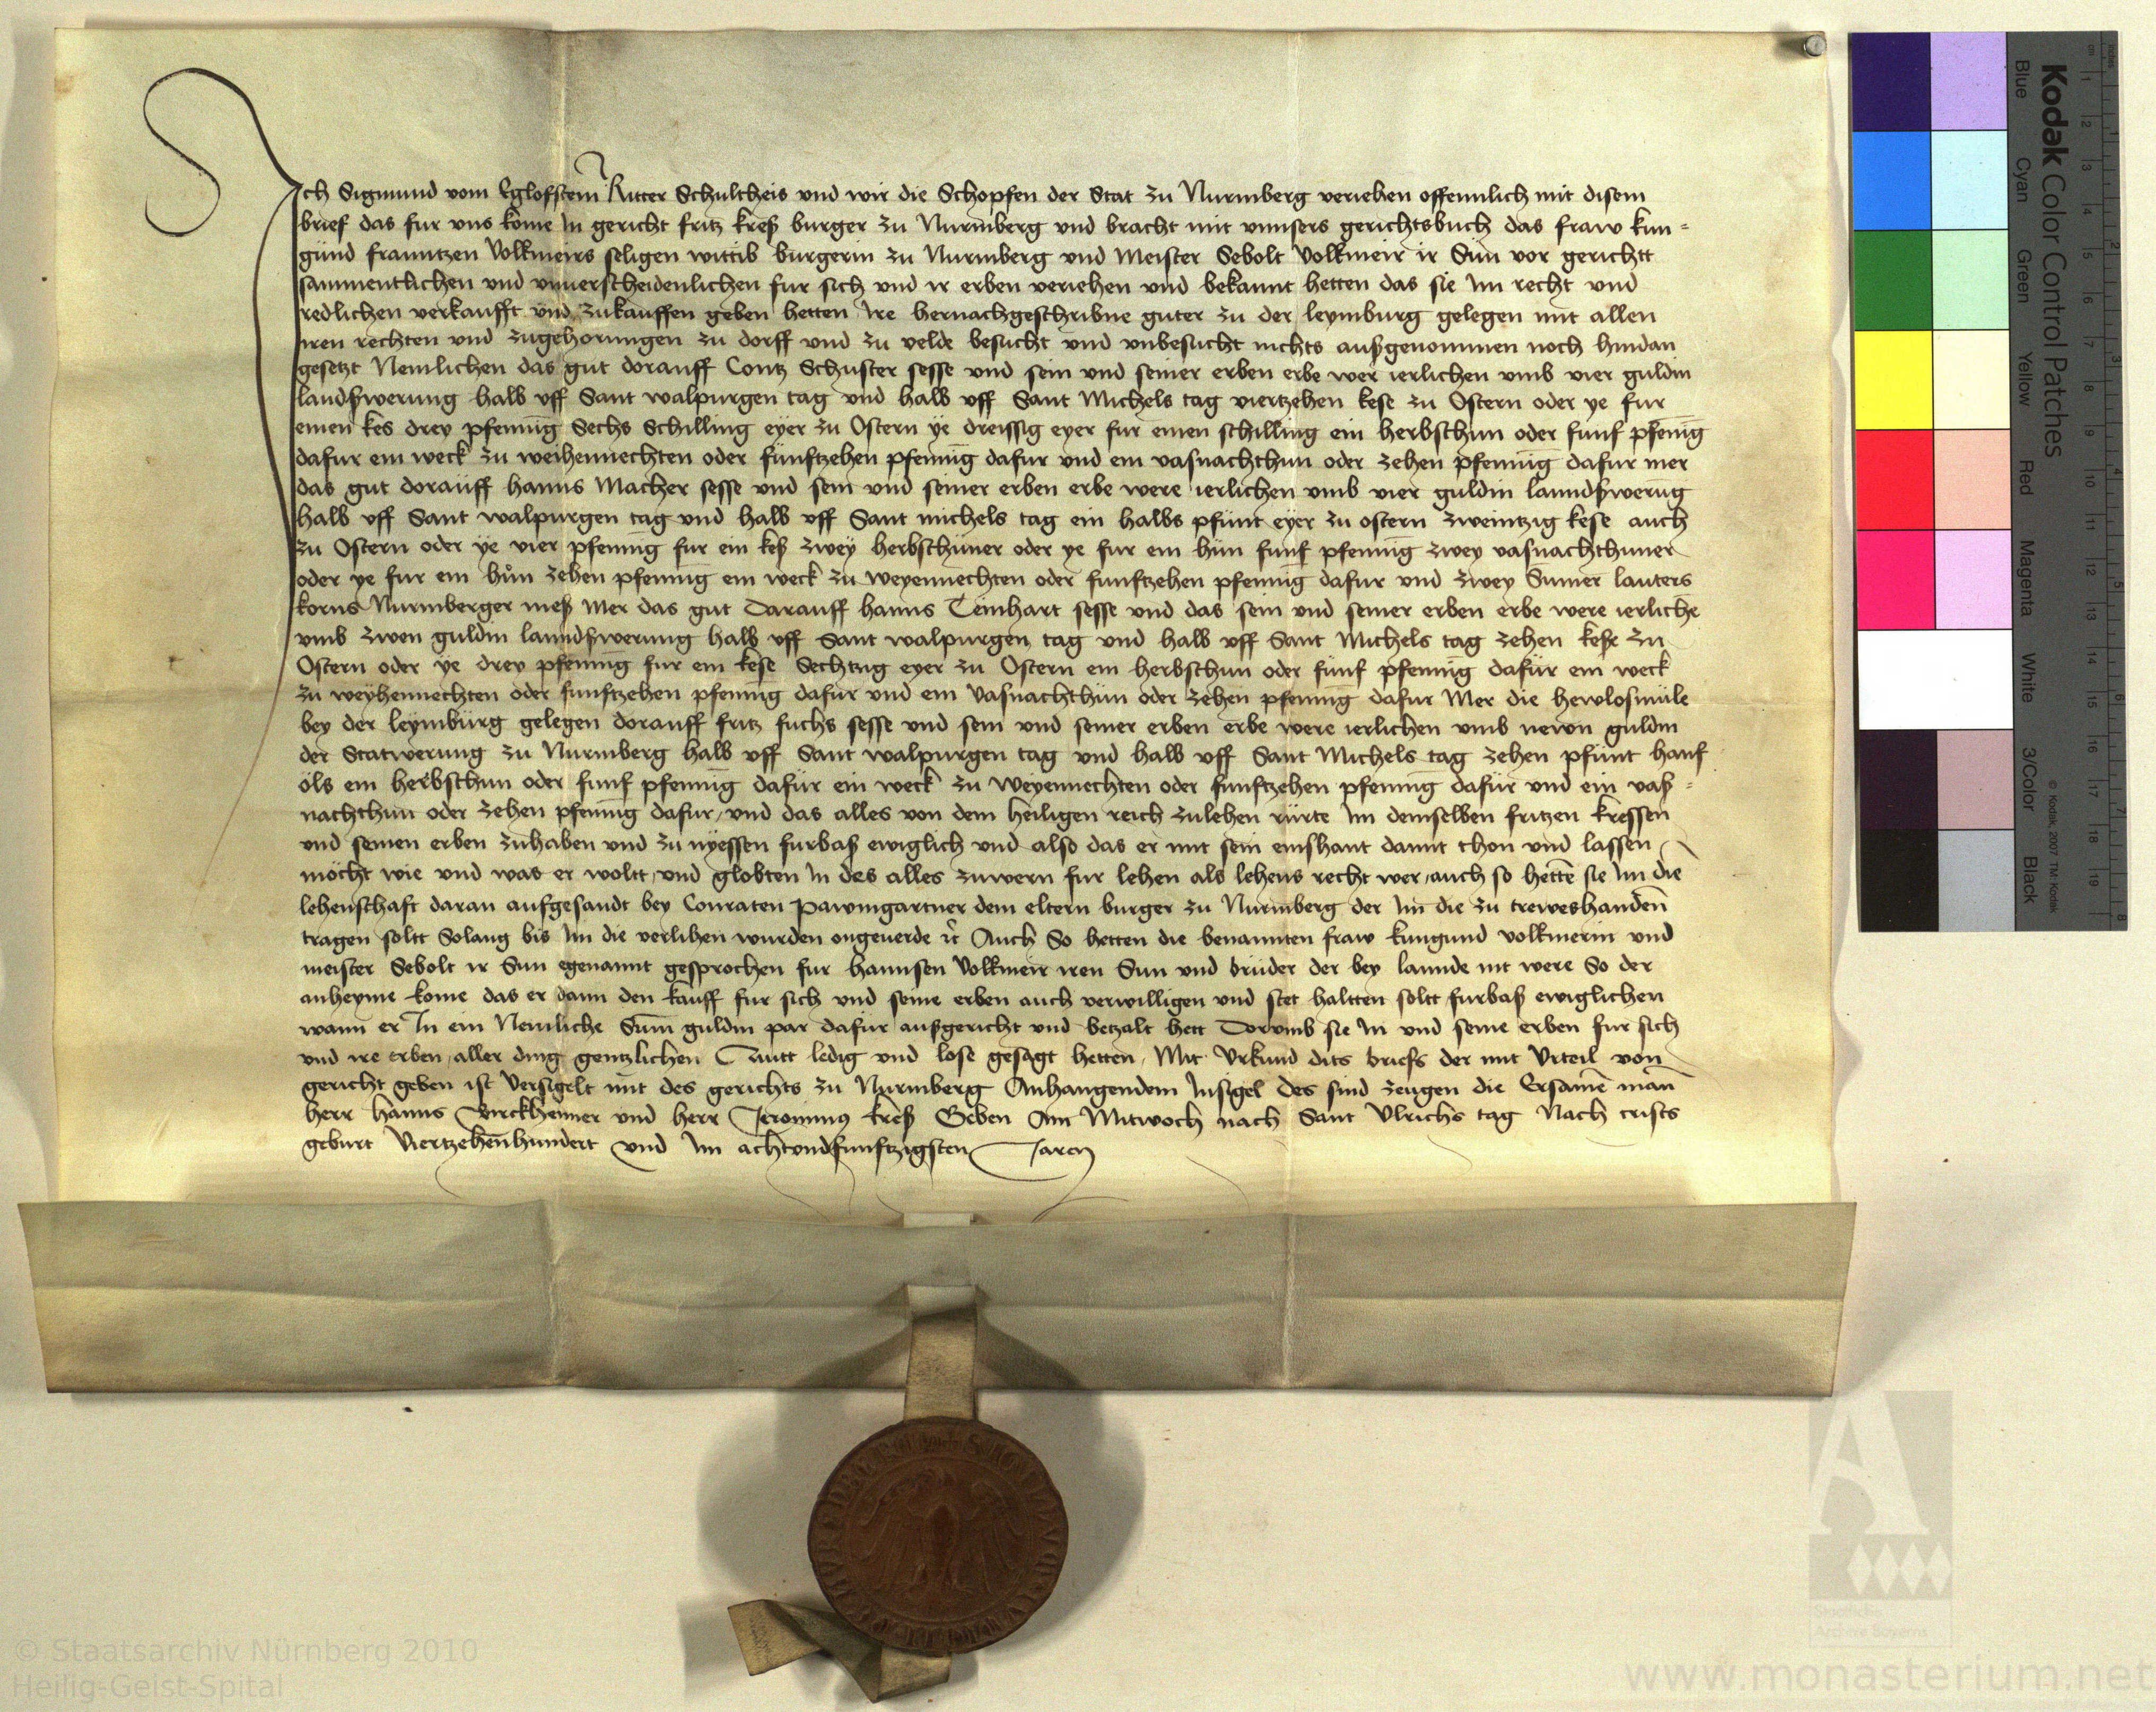 Ich Sigmund vom Eglofstein Ritter Schultheis vnd wir die Schopfen der Stat zu Nurmberg veriehen offennlich mit disem
brief das fur vns kome In gericht fritz kreß burger zu Nurmberg vnd bracht mit vnnsers gerichtsbuch das fraw kun-
gund franntzen Volkmeirs seligen wittib burgerin zu Nurmberg vnd Meister Sebolt Volkmeir ir Sün vor gerichtt
sammentlichen vnd vnuerscheidenlichen fur sich vnd ir erben veriehen vnd bekannt hetten das sie Im recht vnd
redlichen verkaufft vnd zukauffen geben hetten Ire hernachgeschribne guter zu der leymburg gelegen mit allen
iren rechten vnd zugehorungen zu dorff vnd zu velde besucht vnd vnbesucht nichts außgenommen noch hindan
gesetzt Nemlichen das gut dorauff Contz Schuster sesse vnd sein vnd seiner erben erbe wer ierlichen vmb vier guldin
landßwerung halb vff Sant walpurgen tag vnd halb vff Sant Michels tag viertzehen kese zu Ostern oder ye fur
einen kes drey pfenning Sechs Schilling eyer zu Ostern ye dreissig eyer fur einen schilling ein herbsthun oder funf pfenig
dafur ein weck zu weihennechten oder funftzehen pfennig dafur vnd ein vasnachthun oder zehen pfennig dafur mer
das gut dorauff hanns Macher sesse vnd sein vnd seiner erben erbe were ierlichen vmb vier guldin lanndßwerug
halb vff Sant walpurgen tag vnd halb vff Sant michels tag ein halbs pfunt eyer zu ostern zweintzig kese auch
zu Ostern oder ye vier pfennig fur ein keß zwey herbsthuner oder ye fur ein hun funf pfennig zwey vasnachthuner
oder ye fur ein hun zehen pfennig ein weck zu weyennechten oder funftzehen pfennig dafur vnd zwey Sumer lauters
korns Nurmberger meß Mer das gut darauff hanns Leinhart sesse vnd das sein vnd seiner erben erbe were ierliche
vmb zwen guldin lanndßwerung halb vff Sant walpurgen tag vnd halb vff Sant Michels tag zehen keße zu
Ostern oder ye drey pfennig fur ein kese Sechtzig eyer zu Ostern ein herbsthun oder funf pfennig dafur ein weck
zu weyhennechten oder funftzehen pfennig dafur vnd ein Vasnachthun oder zehen pfennig dafur Mer die herolosmüle
bey der leymburg gelegen dorauff fritz fuchs sesse vnd sein vnd seiner erben erbe were ierlichen vmb newn guldin
der Statwerung zu Nurmberg halb vff Sant walpurgen tag vnd halb vff Sant Michels tag zehen pfunt hanf
öls ein herbsthun oder funf pfennig dafur ein weck zu Weyennechten oder funftzehen pfennig dafur vnd ein vaß-
nachthun oder zehen pfennig dafur, vnd das alles von dem heiligen reich zulehen rürte Im demselben fritzen kressen
vnd seinen erben zuhaben vnd zu nyessen furbaß ewiglich vnd also das er mit sein einshant damit thon vnd lassen
möcht wie vnd was er woltt, vnd globten In des alles zuwern fur lehen als lehens recht wer, auch so hette sie Im die
lehenschaft daran aufgesandt bey Conraten pawmgartner dem eltern burger zu Nurmberg der Im die zu treweshanden
tragen soltt Solang bis Im die verlihen wurden ongeuerde ꝛc Auch So hetten die benannten fraw kungund volkmerin vnd
meister Sebolt ir Sun egenannt gesprochen fur hannsen Volkmeir iren Sun vnd bruder der bey lannde nit were So der
anheyme kome das er dann den kauff fur sich vnd seine erben auch verwilligen vnd stet haltten soltt furbaß ewiglichen
wann er In ein Nemliche Sum guldin par dafür außgericht vnd betzalt hett Dorumb sie In vnd seine erben fur sich
vnd ire erben, aller ding gentzlichen Quitt ledig vnd lose gesagt hetten, Mit Vrkund dits briefs der mit Vrteil von
gericht geben ist Versigelt mit des gerichts zu Nurmberg Anhangendem Insigel des sind zeugen die Ersame man
herr hanns Pirckheimer vnd herr Jeronimus kreß Geben Am Mitwoch nach Sant Vlrichs tag Nach crists
geburt Viertzehenhundert vnd Im achtvndfunftzigsten Jaren
Kodak Color Control Patches
Blue Cyan Green Yellow Red Magenta White 3/Color Black
© Kodak, 2007 TM: Kodak
© Staatsarchiv Nürnberg 2010
Heilig-Geist-Spital
Staatliche
Archive Bayerns
www.monasterium.net